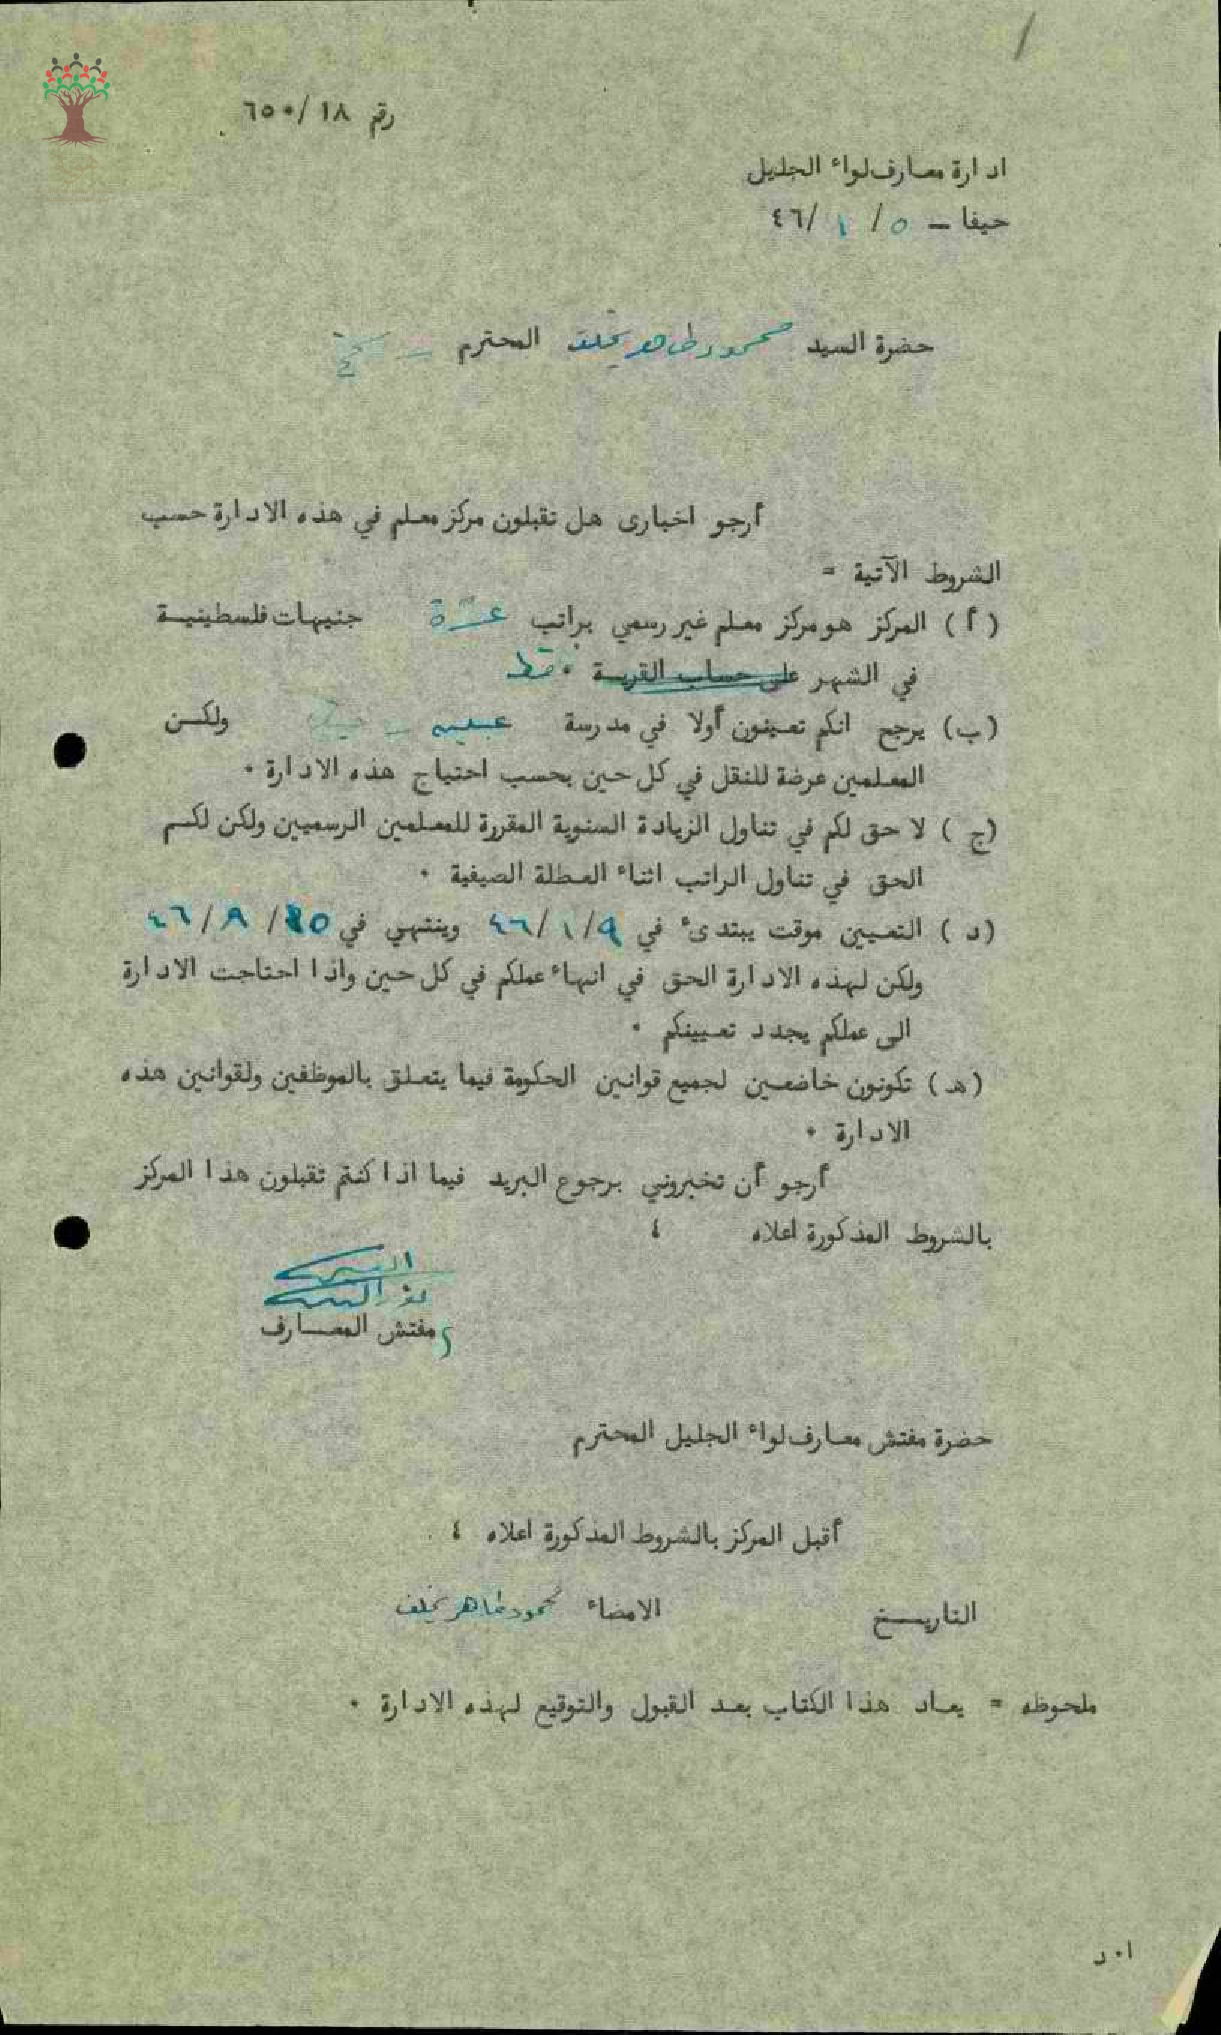 رقم ١٨/٦٥٠
ادارة معارف لواء الجليل
حيفا - ٥/١/٤٦
حضرة السيد محمود طاهر يخلف المحترم -
أرجو اخبارى هل تقبلون مركز معلم في هذه الادارة حسب
الشروط الآتية =
(أ) المركز هو مركز معلم غير رسمي براتب عشرة جنيهات فلسطينية
في الشهر على حساب القرية . فقط
(ب) يرجح انكم تعينون أولا في مدرسة ولكن
المعلمين عرضة للنقل في كل حين بحسب احتياج هذه الادارة .
(ج) لا حق لكم في تناول الزيادة السنوية المقررة للمعلمين الرسميين ولكن لكم
الحق في تناول الراتب اثناء العطلة الصيفية .
(د) التعيين موقت يبتدىء في ٩/١/٤٦ وينتهي في /٨/٤٦
ولكن لهذه الادارة الحق في انهاء عملكم في كل حين واذا احتاجت الادارة
الى عملكم يجدد تعيينكم .
(هـ) تكونون خاضعين لجميع قوانين الحكومة فيما يتعلق بالموظفين ولقوانين هذه
الادارة .
أرجو أن تخبروني برجوع البريد فيما اذا كنتم تقبلون هذا المركز
بالشروط المذكورة اعلاه ٤
مفتش المعارف
حضرة مفتش معارف لواء الجليل المحترم
أقبل المركز بالشروط المذكورة اعلاه ٤
التاريخ الامضاء محمود طاهر يخلف
ملحوظه = يعاد هذا الكتاب بعد القبول والتوقيع لهذه الادارة .
ا.د